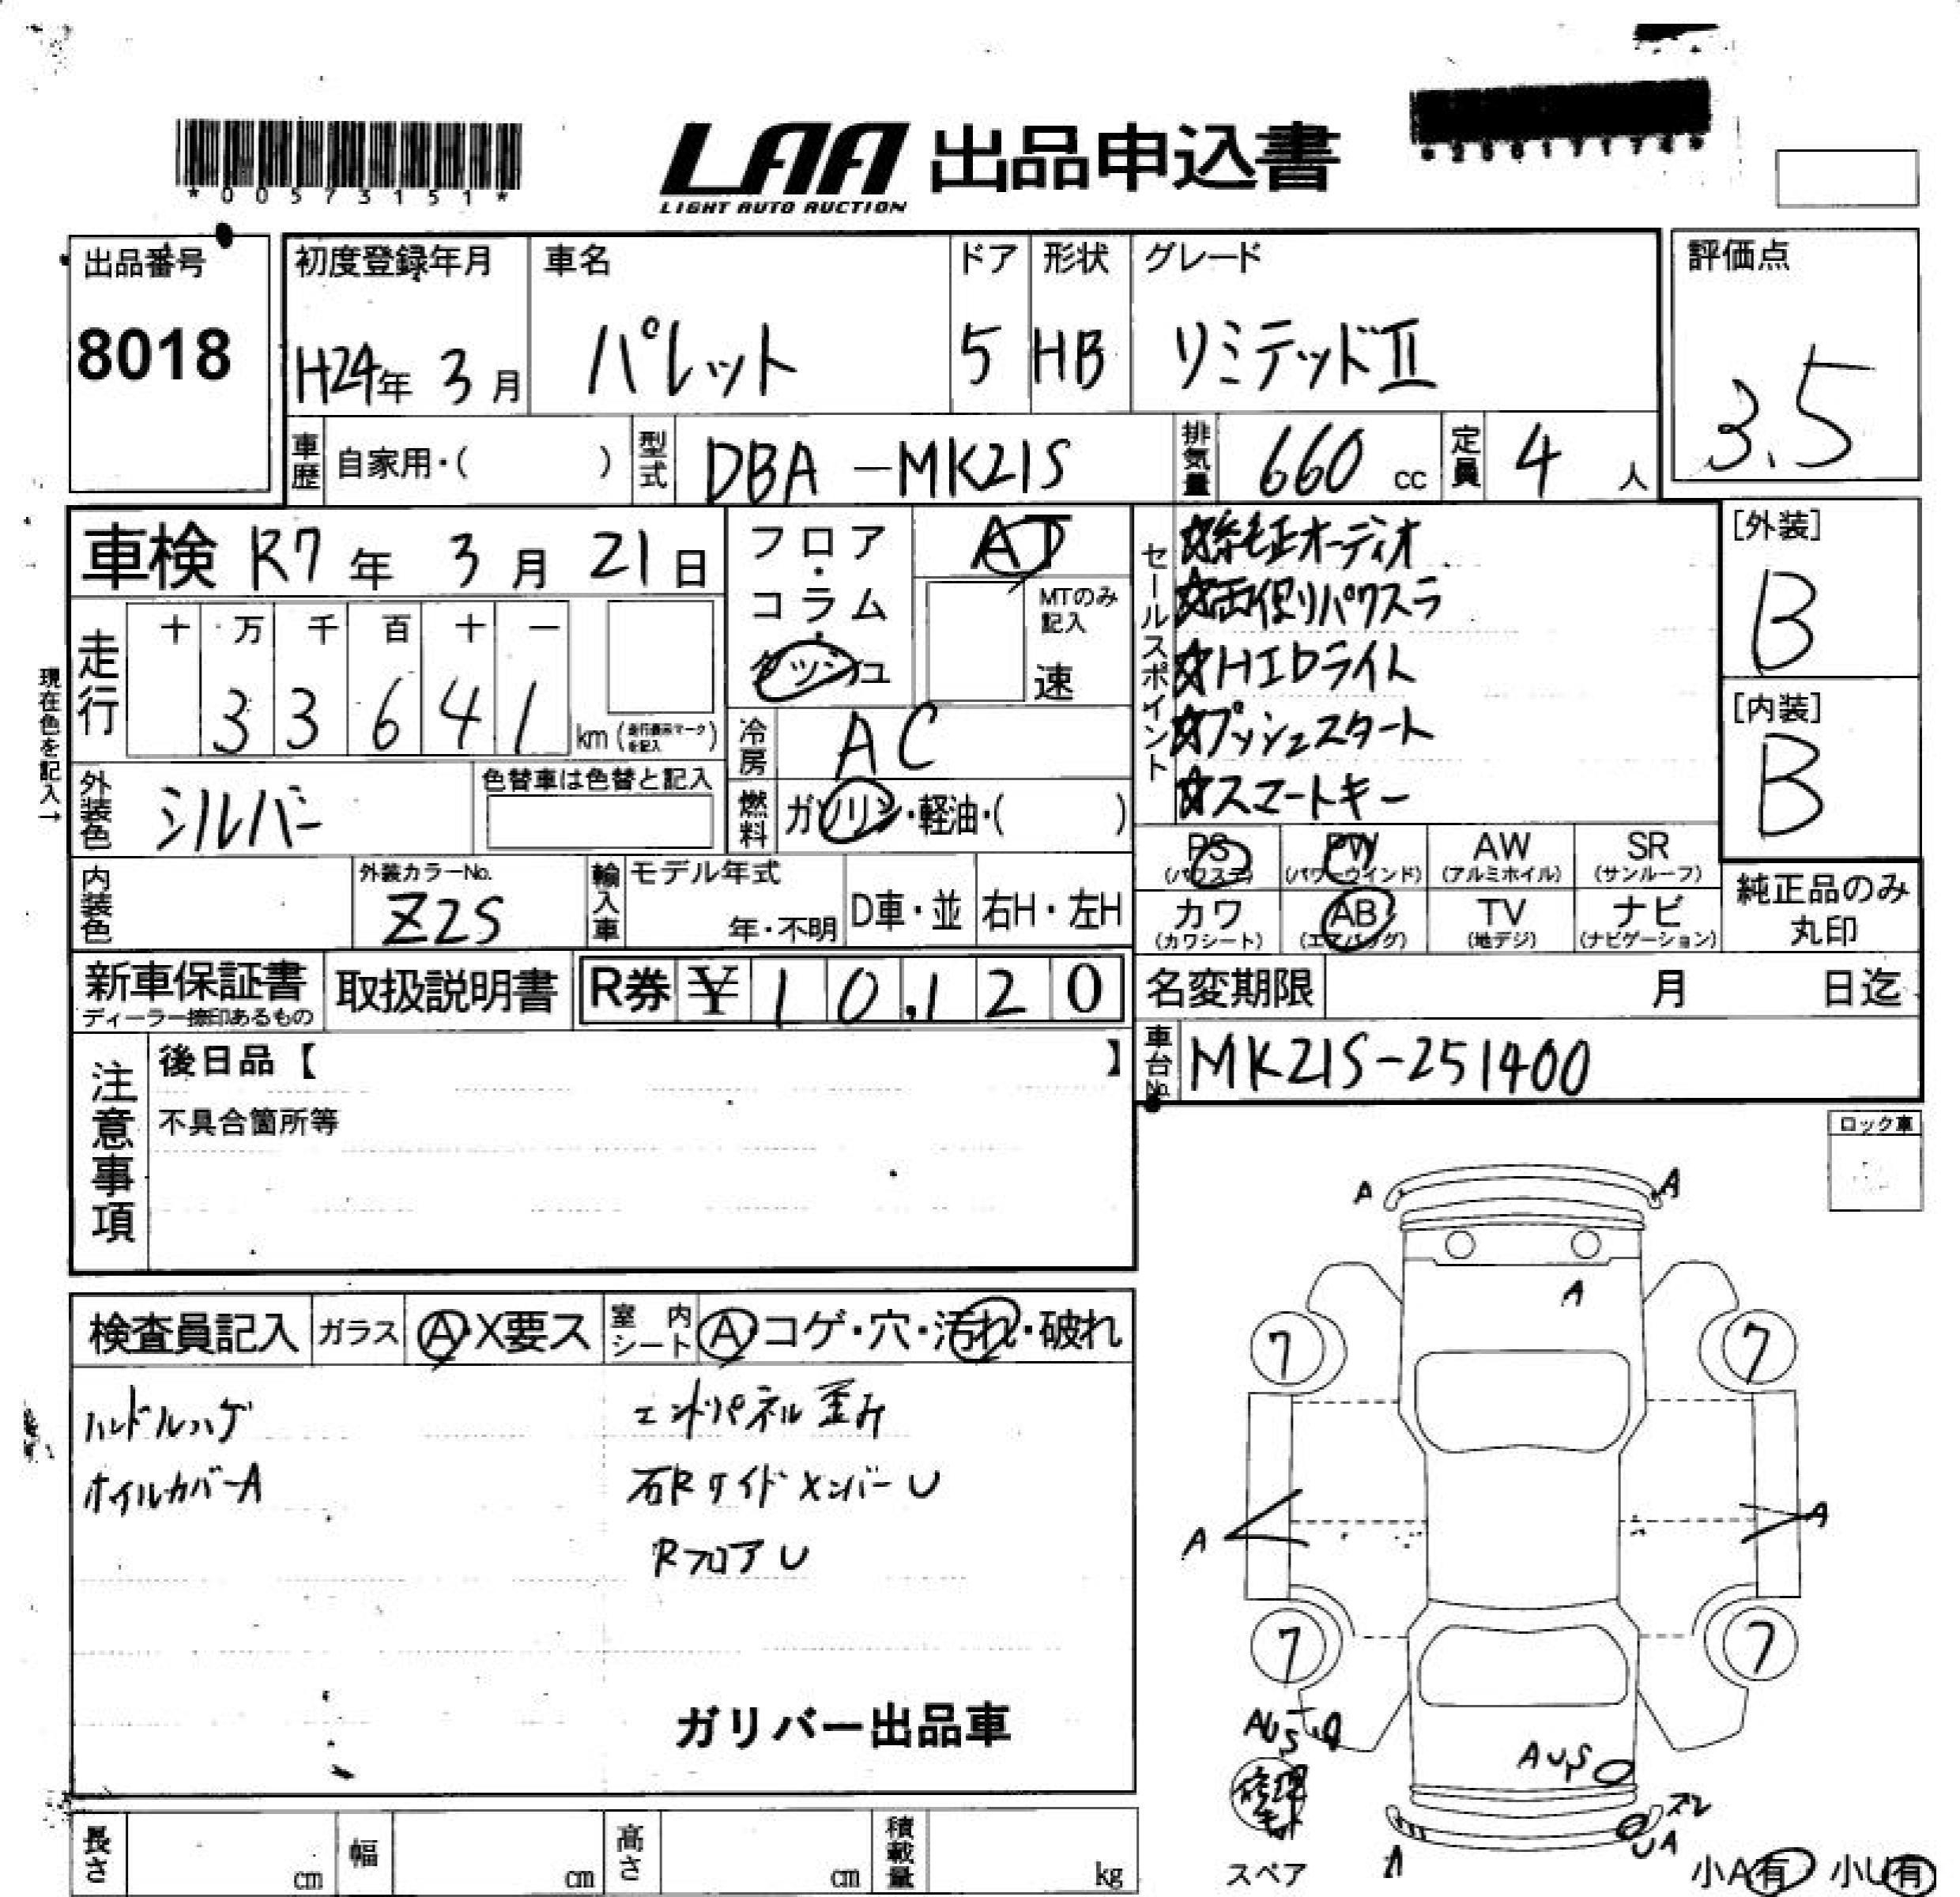 *00573151*
LAA 出品申込書
LIGHT AUTO AUCTION
出品番号
8018
初度登録年月
H24年 3月
車名
パレット
ドア
5
形状
HB
グレード
リミテッドⅡ
評価点
3.5
車歴 自家用・( )
型式 DBA-MK21S
排気量 660 cc
定員 4 人
車検 R7年 3月 21日
フロア・コラム・ダッシュ
AT
MTのみ記入
速
セールスポイント
☆純正オーディオ
☆両側リパワスラ
☆HIDライト
☆プッシュスタート
☆スマートキー
[外装]
B
[内装]
B
現在色を記入→
走行
十 万 千 百 十 一
3 3 6 4 1 km
冷房 AC
外装色 シルバー
色替車は色替と記入
燃料 ガソリン・軽油・( )
PS (パワステ)
PW (パワーウインド)
AW (アルミホイル)
SR (サンルーフ)
カワ (カワシート)
AB (エアバッグ)
TV (地デジ)
ナビ (ナビゲーション)
純正品のみ
丸印
内装色
外装カラーNo.
Z2S
輸入車
モデル年式
年・不明
D車・並
右H・左H
新車保証書
ディーラー捺印あるもの
取扱説明書
R券 ¥ 10,120
名変期限 月 日迄
車台No. MK21S-251400
注意事項
後日品【 】
不具合箇所等
ロック車
検査員記入
ガラス A・X要ス
室内シート A・コゲ・穴・汚れ・破れ
ハンドルハゲ
ホイルカバーA
エンドパネル歪み
右Rサイドメンバー U
Rフロア U
ガリバー出品車
A A
A
7 7
A A
7 7
AUS
AUS
修理
ズレ
UA
A
スペア
小A有 小U有
長さ cm
幅 cm
高さ cm
積載量 kg